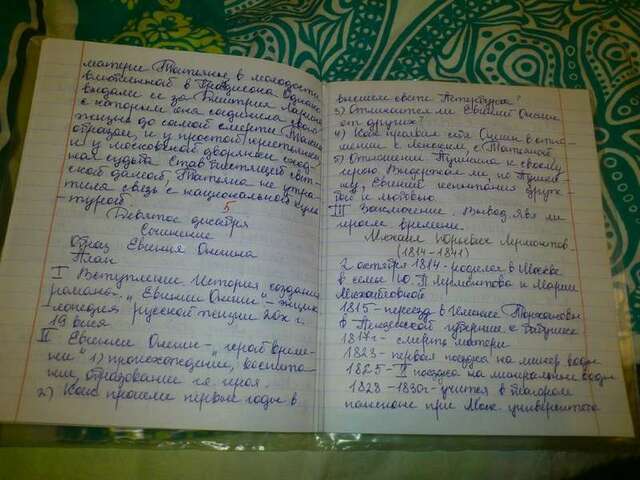 матери Татьяне в молодости
влюбленной в Грандисона Однако
выдали ее за Дмитрия Ларина
с которым она соединила свою
жизнь до самой смерти Таким
образом, и у простой крестьянки
и у московской дворянки сход
ная судьба Став блестящей свет
ской дамой, Татьяна не утра
тила связь с национальной куль
турой.
5
Девятое декабря
Сочинение
Образ Евгения Онегина
План
I Вступление. История создания
романа. "Евгений Онегин" - энцик
лопедия русской жизни 20х г.
19 века
II Евгений Онегин - "герой време-
ни" 1) происхождение, воспита
ние, образование героя.
2) Как прошли первые годы в
высшем свете Петербурга?
3) Отличается ли Евгений Онегин
от других?
4) Как проявил себя Онегин в отно
шении к Ленским с Татьяной
5) Отношение Пушкина к своему
герою Выдержал ли, по Пушки
ну, Евгений испытания друж
бой и любовью.
III Заключение. Вывод Явл ли
героем времени.
Михаил Юрьевич Лермонтов
(1814-1841)
2 октября 1814 - родился в Москве
в семье Ю П Лермонтова и Марии
Михайловной
1815 - переезд в имение Тарханы
в Пензенской губернии к бабушке
1817г - смерть матери
1823 - первая поездка на минер воды
1825 - II поездка на минеральные воды
1828-1830г - учится в
пансионе при Моск. университете